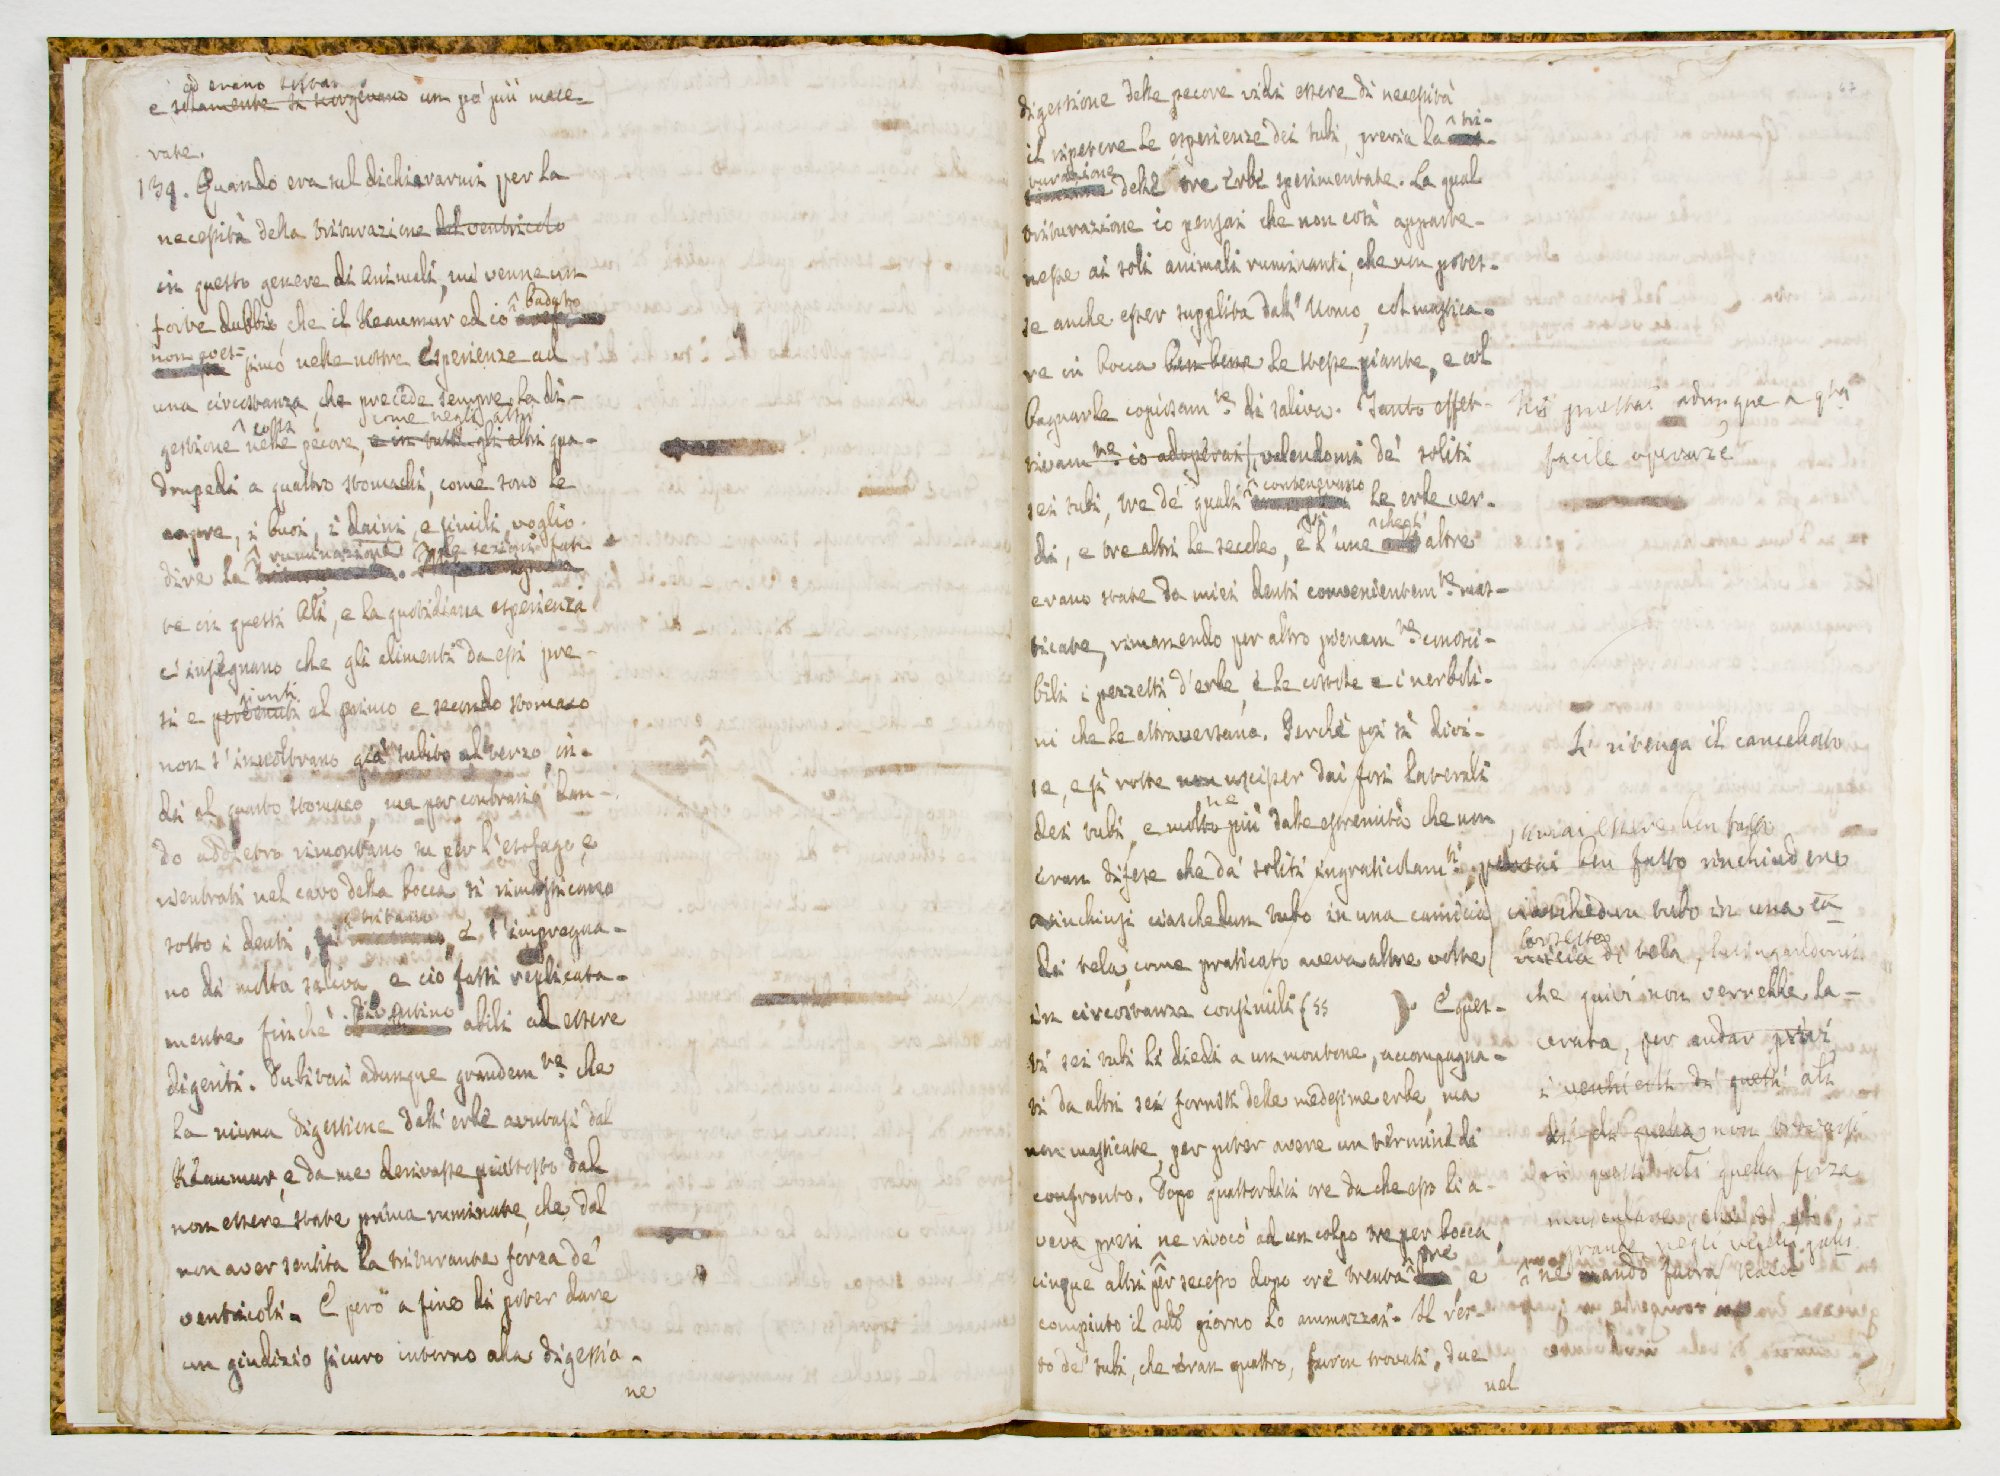 ed erano
e solamente si scorgevano un po' più mace-
rate.
139. Quando era sul dichiararmi per la
necessità della triturazione del ventricolo
in questo genere di animali, mi venne un
forte dubbio, che il Reaumur ed io badato
non aves-
simo nelle nostre esperienze ad
una circostanza, che precede sempre la di-
come negli altri
gestione nelle pecore, e in tutti gli altri qua-
drupedi a quattro stomachi, come sono le
capre, i buoi, i daini, e simili, voglio
ruminazione le sezioni fat-
dire la
te in questi Ali, e la quotidiana esperienza
c'insegnano che gli alimenti da essi pre-
giunti
si e pervenuti al primo e secondo stomaco
non s'inoltrano già subito al terzo, in-
di al quarto stomaco, ma per contrario dan-
do addietro rimontano su per l'esofago, e
rientrati nel cavo della bocca si rimasticano
sotto i denti, si tritano, e s'impregna-
no di molta saliva, e ciò fassi replicata-
mente finchè diventino abili ad essere
digeriti. Dubitai adunque grandem.te che
la niuna digestione dell'erbe avutasi dal
Reaumur, e da me derivasse piuttosto dal
non essere state prima ruminate, che dal
non aver sentita la triturante forza de'
ventricoli. E però a fine di poter dare
un giudizio sicuro intorno alla digestio-
ne
67
digestione delle pecore vidi essere di necessità
il ripetere le esperienze dei tubi, previa la tri-
turazione
delle tre erbe sperimentate. La qual
triturazione io pensai che non così apparte-
nesse ai soli animali ruminanti, che non potes-
se anche esser supplita dall'Uomo, col mastica-
re in bocca ben bene le stesse piante, e col
bagnarle copiosam.te di saliva. Tanto effet-
tivam.te io adoperai, valendomi de' soliti
sei tubi, tre de' quali contenevano le erbe ver-
di, e tre altri le secche, e l'une altre
erano state da miei denti convenientem.te mas-
ticate, rimanendo per altro pienam.te conosci-
bili i pezzetti d'erbe, e le costole e i nerboli-
ni che le attraversano. Perchè poi sì divi-
se, e sì rotte non uscisser dai fori laterali
dei tubi, e molto più dalle estremità che non
eran difese che da' soliti ingraticolam.ti,
rinchiusi ciaschedun tubo in una camicia
di tela, come praticato aveva altre volte
in circostanze consimili (§§ ). E ques-
ti sei tubi li diedi a un montone, accompagna-
ti da altri sei forniti delle medesime erbe, ma
non masticate, per poter avere un termine di
confronto. Dopo quattordici ore da che esso li a-
veva presi ne rivocò ad un colpo tre per bocca,
cinque altri per secesso dopo ore trenta tre, e
compiuto il giorno lo ammazzai. Il res-
to de' tubi, che eran quattro, furon trovati, due
nel
Mi prestai adunque a q.ta
facile operaz.e
Si ritenga il cancellato
essere ben fatto
pensai ben fatto rinchiudere
ciaschedun tubo in una ca-
borsetta
micia di tela, lusingandomi
che quivi non verrebbe la-
cerata, per andar privi
i ventricoli di questi ali
di quella non
in questi ali quella forza
muscolare, che è sì
grande negli uccelli gallin.
ne mandò fuora